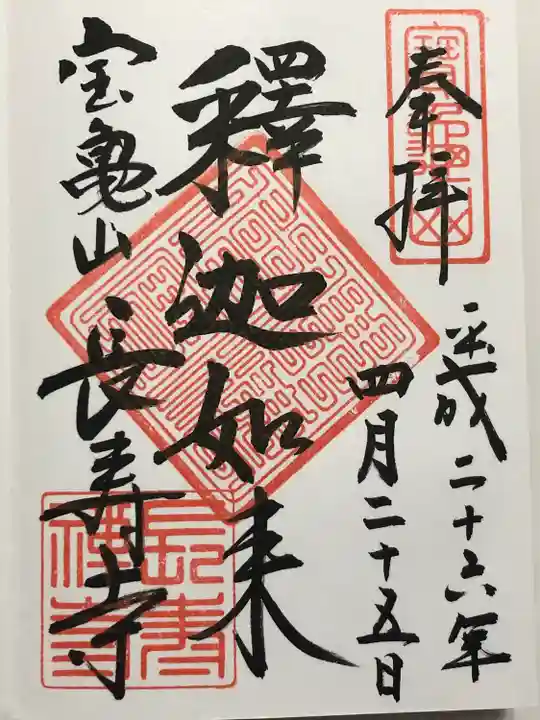 奉拝
平成二十六年
四月二十五日
釋迦如来
宝亀山長寿寺
長寿禅寺